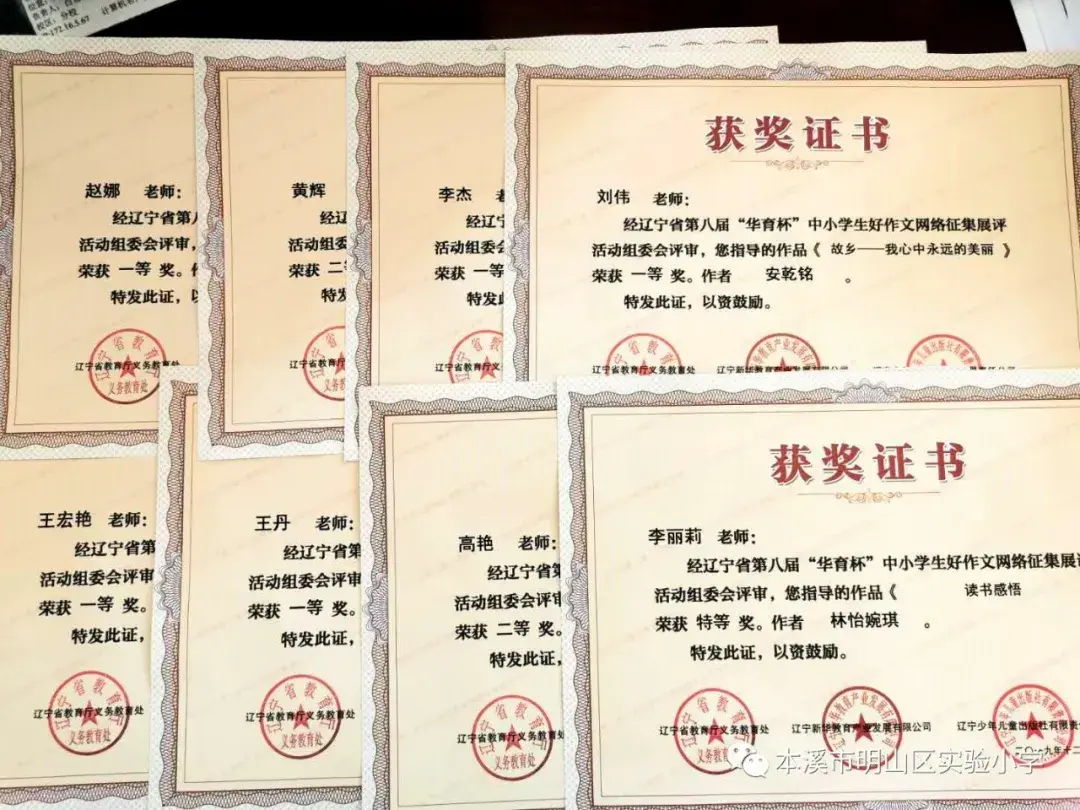 校区：分校
172.16.5.67
赵娜 老师：
经辽宁省第八
活动组委会评审，
荣获 一等 奖。
特发此证，以
辽宁省教育厅义务教育处
黄辉
经辽
活动组
荣获 二等
特发
李杰
经辽宁
活动组委
荣获 一等
特发此
获奖证书
刘伟 老师：
经辽宁省第八届“华育杯”中小学生好作文网络征集展评
活动组委会评审，您指导的作品《 故乡——我心中永远的美丽 》
荣获 一等 奖。作者 安乾铭 。
特发此证，以资鼓励。
辽宁省教育厅义务教育处
王宏艳 老师：
经辽宁省第
活动组委会评审
荣获 一等 奖。
特发此证，
辽宁省教育厅义务教育处
王丹 老师：
经辽宁省第
活动组委会评审
荣获 一等 奖。
特发此证，
辽宁省教育厅义务教育处
高艳 老师：
经辽宁省第
活动组委会评审
荣获 二等 奖。
特发此证，
辽宁省教育厅义务教育处
获奖证书
李丽莉 老师：
经辽宁省第八届“华育杯”中小学生好作文网络征集展评
活动组委会评审，您指导的作品《 读书感悟
荣获 特等 奖。作者 林怡婉琪 。
特发此证，以资鼓励。
辽宁省教育厅义务教育处 辽宁新华教育产业发展有限公司 辽宁少年儿童出版社有限责
本溪市明山区实验小学